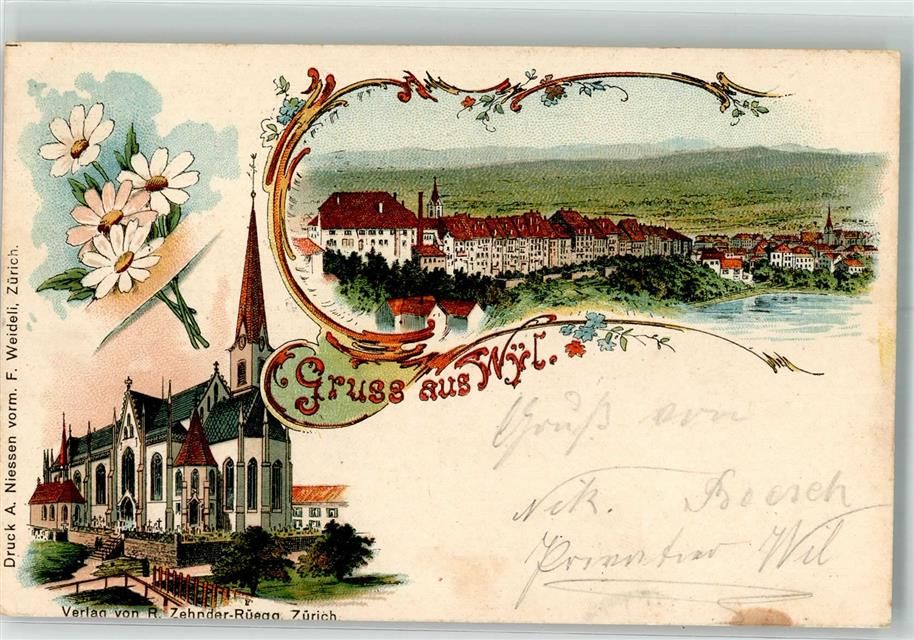 Gruss aus Wÿl.
Gruß von
Nik. Boesch
Privatier Wil
Druck A. Niessen vorm. F. Weideli, Zürich.
Verlag von R. Zehnder-Rüegg, Zürich.